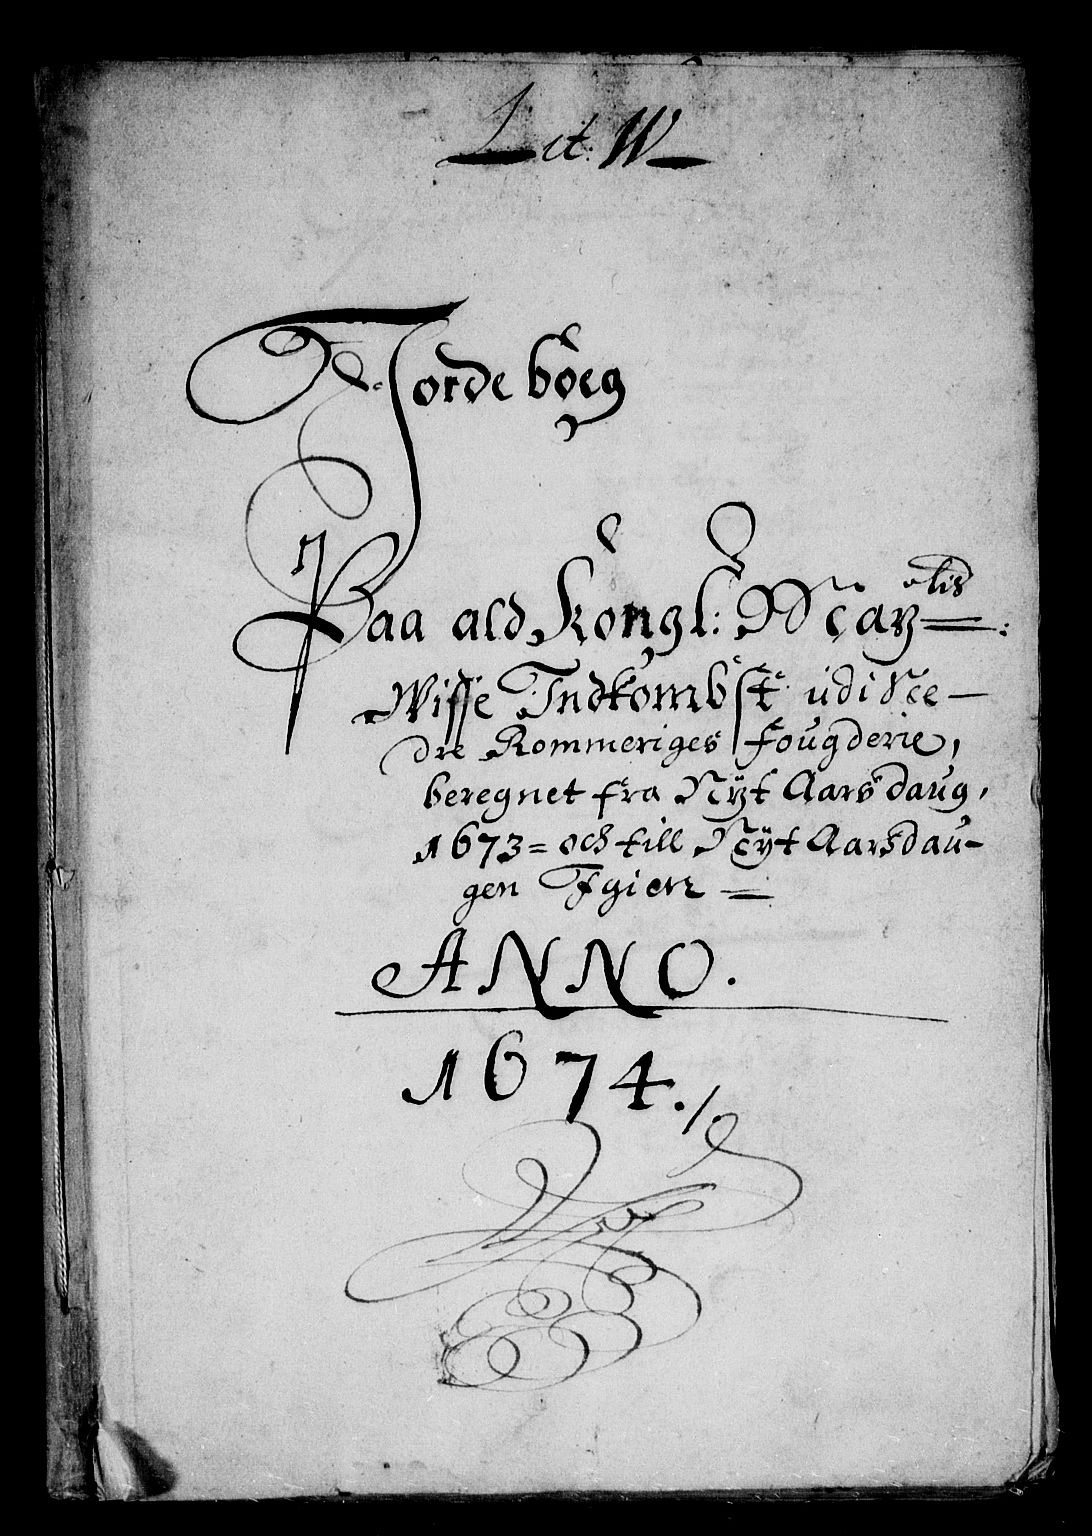 Lit: W
Jordeboeg
Paa ald Kongl: May^tis:
Wisse Indkombst udi Ne-
dre Rommeriges Fougderie,
beregnet fra Nÿt Aarsdaug,
1673 = och till Nÿt Aarsdau-
gen Igien =
ANNO.
1674./.